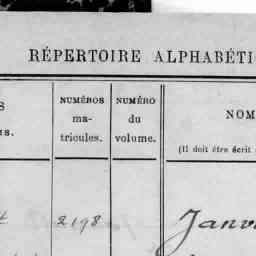 RÉPERTOIRE ALPHABÉTI
NUMÉROS
ma-
tricules.
NUMÉRO
du
volume.
NOM
(Il doit être écrit
2198
Janv